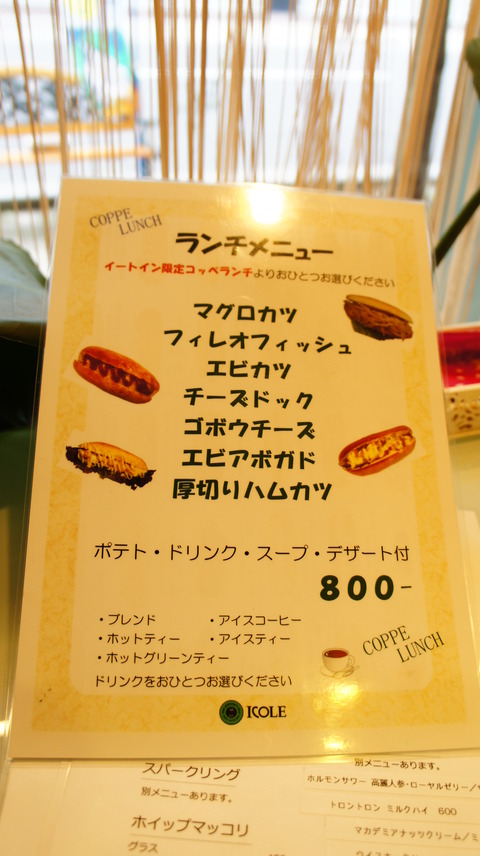 COPPE
LUNCH
ランチメニュー
イートイン限定コッペランチよりおひとつお選びください
マグロカツ
フィレオフィッシュ
エビカツ
チーズドック
ゴボウチーズ
エビアボガド
厚切りハムカツ
ポテト・ドリンク・スープ・デザート付
800-
・ブレンド ・アイスコーヒー
・ホットティー ・アイスティー
・ホットグリーンティー
ドリンクをおひとつお選びください
COPPE
LUNCH
ICOLE
スパークリング
別メニューあります。
ホイップマッコリ
グラス
別メニューあります。
ホルモンサワー 高麗人参・ローヤルゼリー/
トロントロン ミルクハイ 600
マカデミアナッツクリーム/ミ